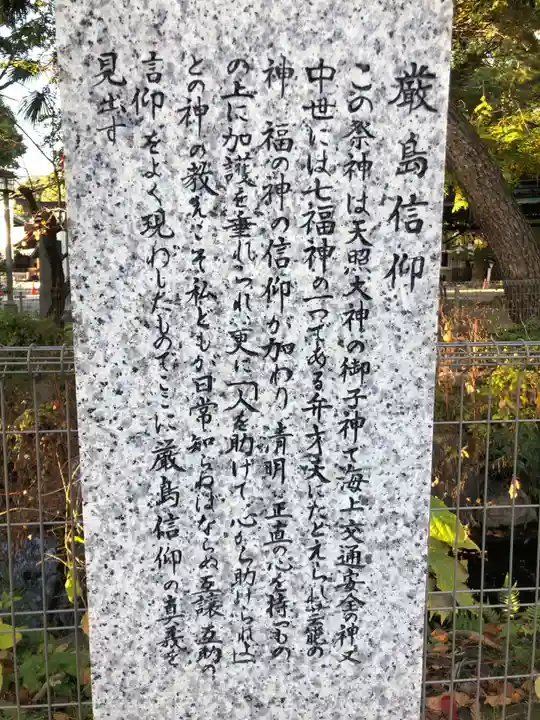 厳島信仰
この祭神は天照大神の御子神で海上交通安全の神又
中世には七福神の一つである弁才天にたとえられ芸能の
神 福の神の信仰が加わり 清明 正直の心を持つもの
の上に加護を垂れられ、更に「人を助けて心から助けられよ」
との神の教えこそ私どもが日常知らねばならぬ互譲互助の
信仰をよく現わしたものでここに厳島信仰の真義を
見出す